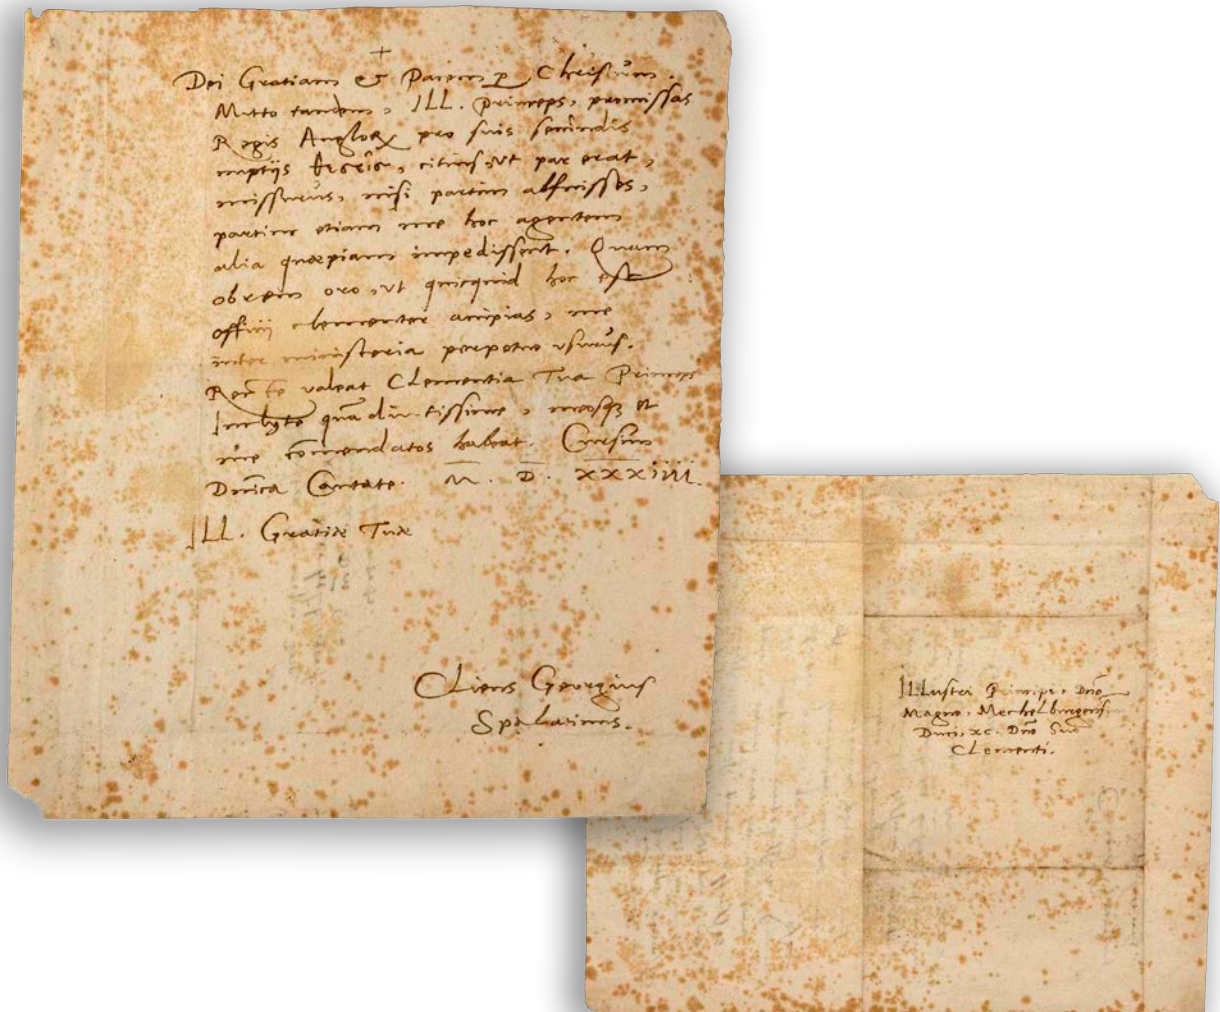 +
Dei Gratiam & Pacem p Christum.
Mitto tandem, ILL. Princeps, promissas
Regis Anglorꝝ pro suis secundis
nuptijs θεσεις, citius, vt par erat,
missurus, nisi partim abfuisses,
partim etiam me hoc agentem
alia quæpiam impedissent. Quam
obrem oro, vt quicquid hoc est
officij clementer accipias, me
inter ministeria perpetuo vsurus.
valeat Clementia Tua Princeps
Inclyte quā diutissime, meosqꝫ et
me cōmendatos habeat. Cursim
Dnica Cantate. M. D. XXXiiii.
ILL. Gratiæ Tuæ
Cliens Georgius
Spalatinus.
ILLustri Principi, Dno
Magno, Mechelburgensi
Duci, xc. Dno Suo
CLementi.